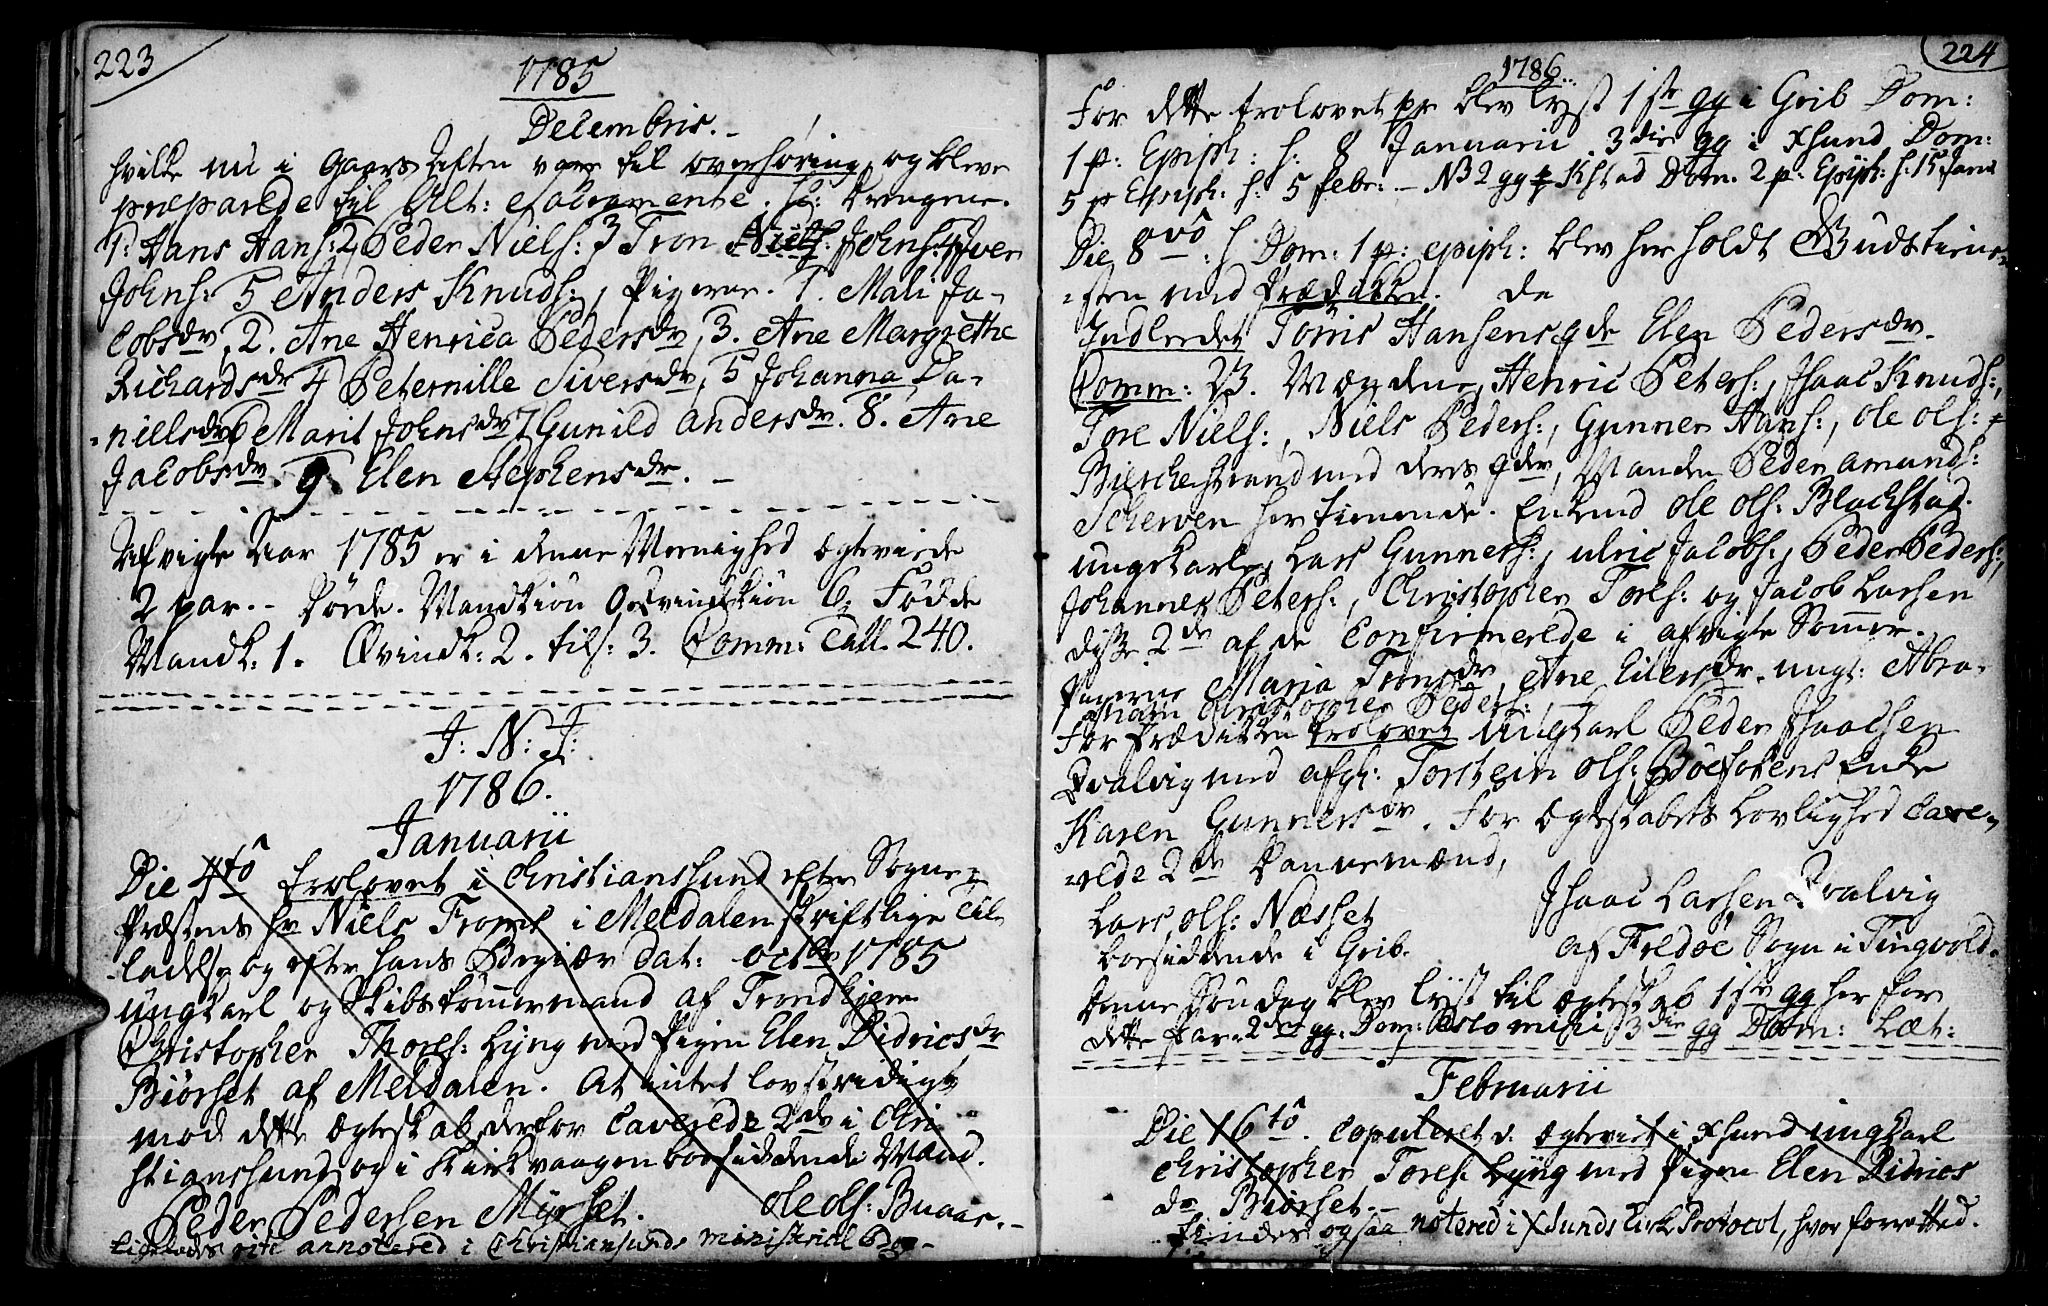 223
1785
Decembris. -
hvilke nu i Gaars Aften vare til overhøring, og bleve
preparede til Alt: Sacramente. h: Drengene.
1: Hans Hans: 2 Peder Niels: 3 Tron Johns: 4 Iver
Johns: 5 Anders Knuds:, Pigerne. 1. Mali Ja-
cobsdr, 2. Ane Henrica Pedersdr, 3. Ane Margrethe
Richardsdr 4 Peternille Siversdr, 5 Johanna Da-
nielsdr 6 Marit Johnsdr 7 Gunild Andersdr. 8. Ane
Jacobsdr. 9. Elen Stephensdr. -
Afvigte Aar 1785 er i denne Meenighed ægteviede
2 par. - Døde. Mandkiøn 0. Qvindekiøn 6, Fødde
Mandk: 1. Qvindk: 2. tils: 3. Comm: Tall. 240.
J: N: J:
1786.
Januarii
Die 4to trolovet i Christianssund efter Sogne-
Præstens hr Niels Froms i Meldalen skriftlige Til-
ladelse og efter hans Begiær dat: octbr 1785
Ungkarl og Skibstømmermand af Trondhjem
Christopher Thores: Lÿng med Pigen Elen Didricsdr
Biørset af Meldalen. At intet lovstridigt
mod dette Ægteskab, derfor caverede 2de i Chri-
stianssund og i Kirkvaagen boesiddende Mænd.
Peder Pedersen Mÿrset. Ole Ols: Buaas. -
Ligeledes rite annotered i Christiansunds ministerial Bog -
224
1786.
For dette trolovet par blev lyst 1ste gg i Grib Dom:
1 p: Epiph: h: 8 Januarii. 3die gg i Xsund Dom:
5 p Epiph: h: 5 febr: - NB 2 gg Xstad Dom: 2 p: Epiph: h: 15 Janu
Die 8avo h Dom: 1 p: epiph: blev her holdt Gudstiene-
sten med Prædikken. de
Indleedet Tönnis Hansens qde Elen Pedersdr.
Comm: 23. Mændene, Henric Peters:, Isaac Knuds:,
Tore Niels:, Niels Peders:, Gunner Hans:, Ole Ols:
Bierchestrand med deres qdr, Manden Peder Amunds:
Scherven her tienende. Enkmd Ole Ols: Blachstad.
ungkarle, Lars Gunners:, Ulric Jacobs:, Peder Peders:,
Johannes Peters:, Christopher Tores: og Jacob Larsen
disse 2de af de Confirmerede i afvigte Sommer.
Pigerne Maria Tronsdr, Ane Eilersdr. ungk: Abra-
ham Christopher Peders:
For Prædikken trolovet Ungkarl Peder Isaacsen
Qvalvig med afg: Torstein Ols: Böeforens Enke
Karen Gunnersdr. For Ægteskabets Lovlighed cave-
rede 2de Dannemænd,
Lars Ols: Næsset
boesiddende i Grib.
Isaac Larsen Qvalvig
af Fredöe Sogn i Tingvold.
Denne Söndag blev lyst til Ægteskab 1ste gg her for
dette Par. 2den gg: Dom: Estomihi 3die gg Dom: Læt:
Februarii
Die 16to. Copuleret d: ægteviet i Xsund ungkarl
Christopher Tores: Lÿng med Pigen Elen Didrics
dr Biørset. -
findes ogsaa notered i Xsunds Kirke Protocol, hvor forretted.